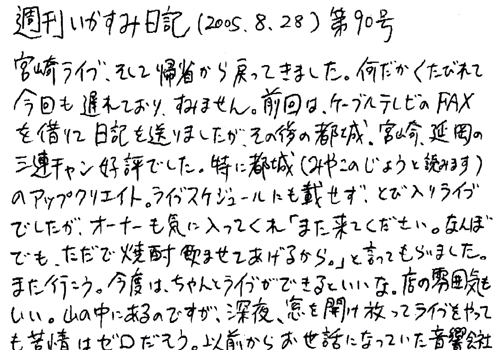 週刊いかすみ日記(2005.8.28)第90号
宮崎ライブ、そして帰省から戻ってきました。何だかくたびれて
今回も遅れており、すみません。前回は、ケーブルテレビのFAX
を借りて日記も送りましたが、その後の都城、宮崎、延岡の
三連チャン好評でした。特に都城(みやこのじょうと読みます)
のアップクリエイト。ライブスケジュールにも載せず、とび入りライブ
でしたが、オーナーも気に入ってくれ「また来てください。なんぼ
でも、ただで焼酎飲ませてあげるから。」と言ってもらいました。
また行こう。今度は、ちゃんとライブができるといいな。店の雰囲気も
いい。山の中にあるのですが、深夜、窓を開け放ってライブをやって
も苦情はゼロだそう。以前からお世話になっていた音響会社